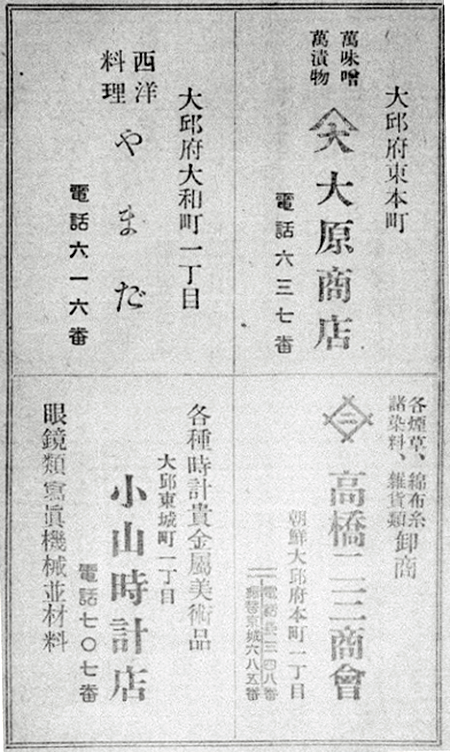 大邱府東本町
萬味噌
萬漬物
大
大原商店
電話六三七番
大邱府大和町一丁目
西洋
料理
やまだ
電話六一六番
各煙草、綿布糸
諸染料、雜貨類
卸商
二三
高橋二三商會
朝鮮大邱府本町一丁目
電話長三四八番
振替京城六八五番
各種時計貴金屬美術品
大邱東城町一丁目
小山時計店
電話七〇七番
眼鏡類寫眞機械並材料